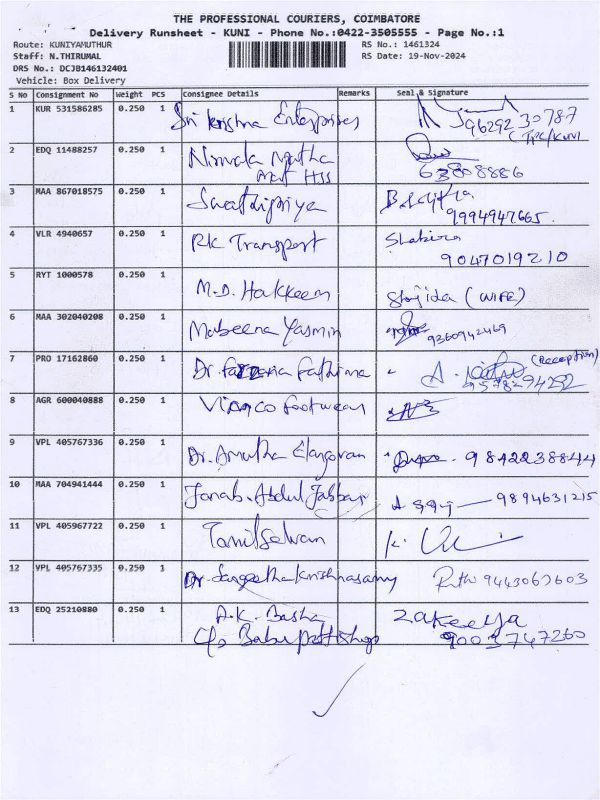 THE PROFESSIONAL COURIERS, COIMBATORE
Delivery Runsheet - KUNI - Phone No.:0422-3505555 - Page No.:1
Route: KUNIYAMUTHUR RS No.: 1461324
Staff: N.THIRUMAL RS Date: 19-Nov-2024
DRS No.: DCJB146132401
Vehicle: Box Delivery
S No Consignment No Weight PCS Consignee Details Remarks Seal & Signature
1 KUR 531586285 0.250 1 Sri Krishna Enterprises 96292 30787
2 EDQ 11488257 0.250 1 Nirmala Matha
Mat HSS
3 MAA 867018575 0.250 1 Swathipriya
9994947665.
4 VLR 4940657 0.250 1 RK Transport Shakira
9047019210
5 RYT 1000578 0.250 1 M.D. Hakkeem (WIFE)
6 MAA 302040208 0.250 1 Mabeena Yasmin 9360942469
7 PRO 17162860 0.250 1 Dr. Fathima (Reception)
8 AGR 600040888 0.250 1 Footwear
9 VPL 405767336 0.250 1 Dr. Amutha Elangovan 9842238844
10 MAA 704941444 0.250 1 Janab. Abdul Jabbar 9894631215
11 VPL 405967722 0.250 1 Tamilselvan
12 VPL 405767335 0.250 1 Dr. Sangeetha Krishnasamy 9443067603
13 EDQ 25210880 0.250 1 A.K. Basha Zakeeya
C/o Baba 9003747260